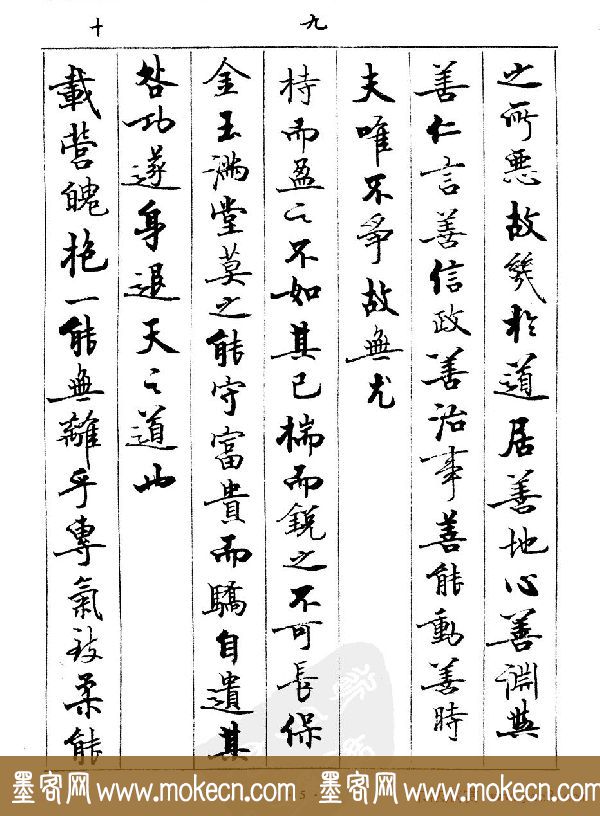 九
十
之所惡故幾於道居善地心善淵與
善仁言善信政善治事善能動善時
夫唯不爭故無尤
持而盈之不如其已揣而銳之不可長保
金玉滿堂莫之能守富貴而驕自遺其
咎功遂身退天之道也
載營魄抱一能無離乎專氣致柔能
墨客网 www.mokecn.com 墨客网 www.mokecn.com